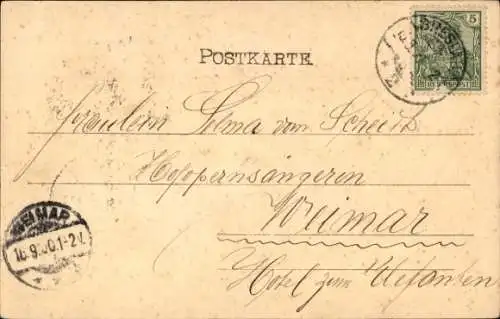 5
POSTKARTE
Fräulein Selma vom Scheidt
Hofopernsängerin
Weimar
WEIMAR
16.9.00.1-2N.
Hotel zum Elefanten